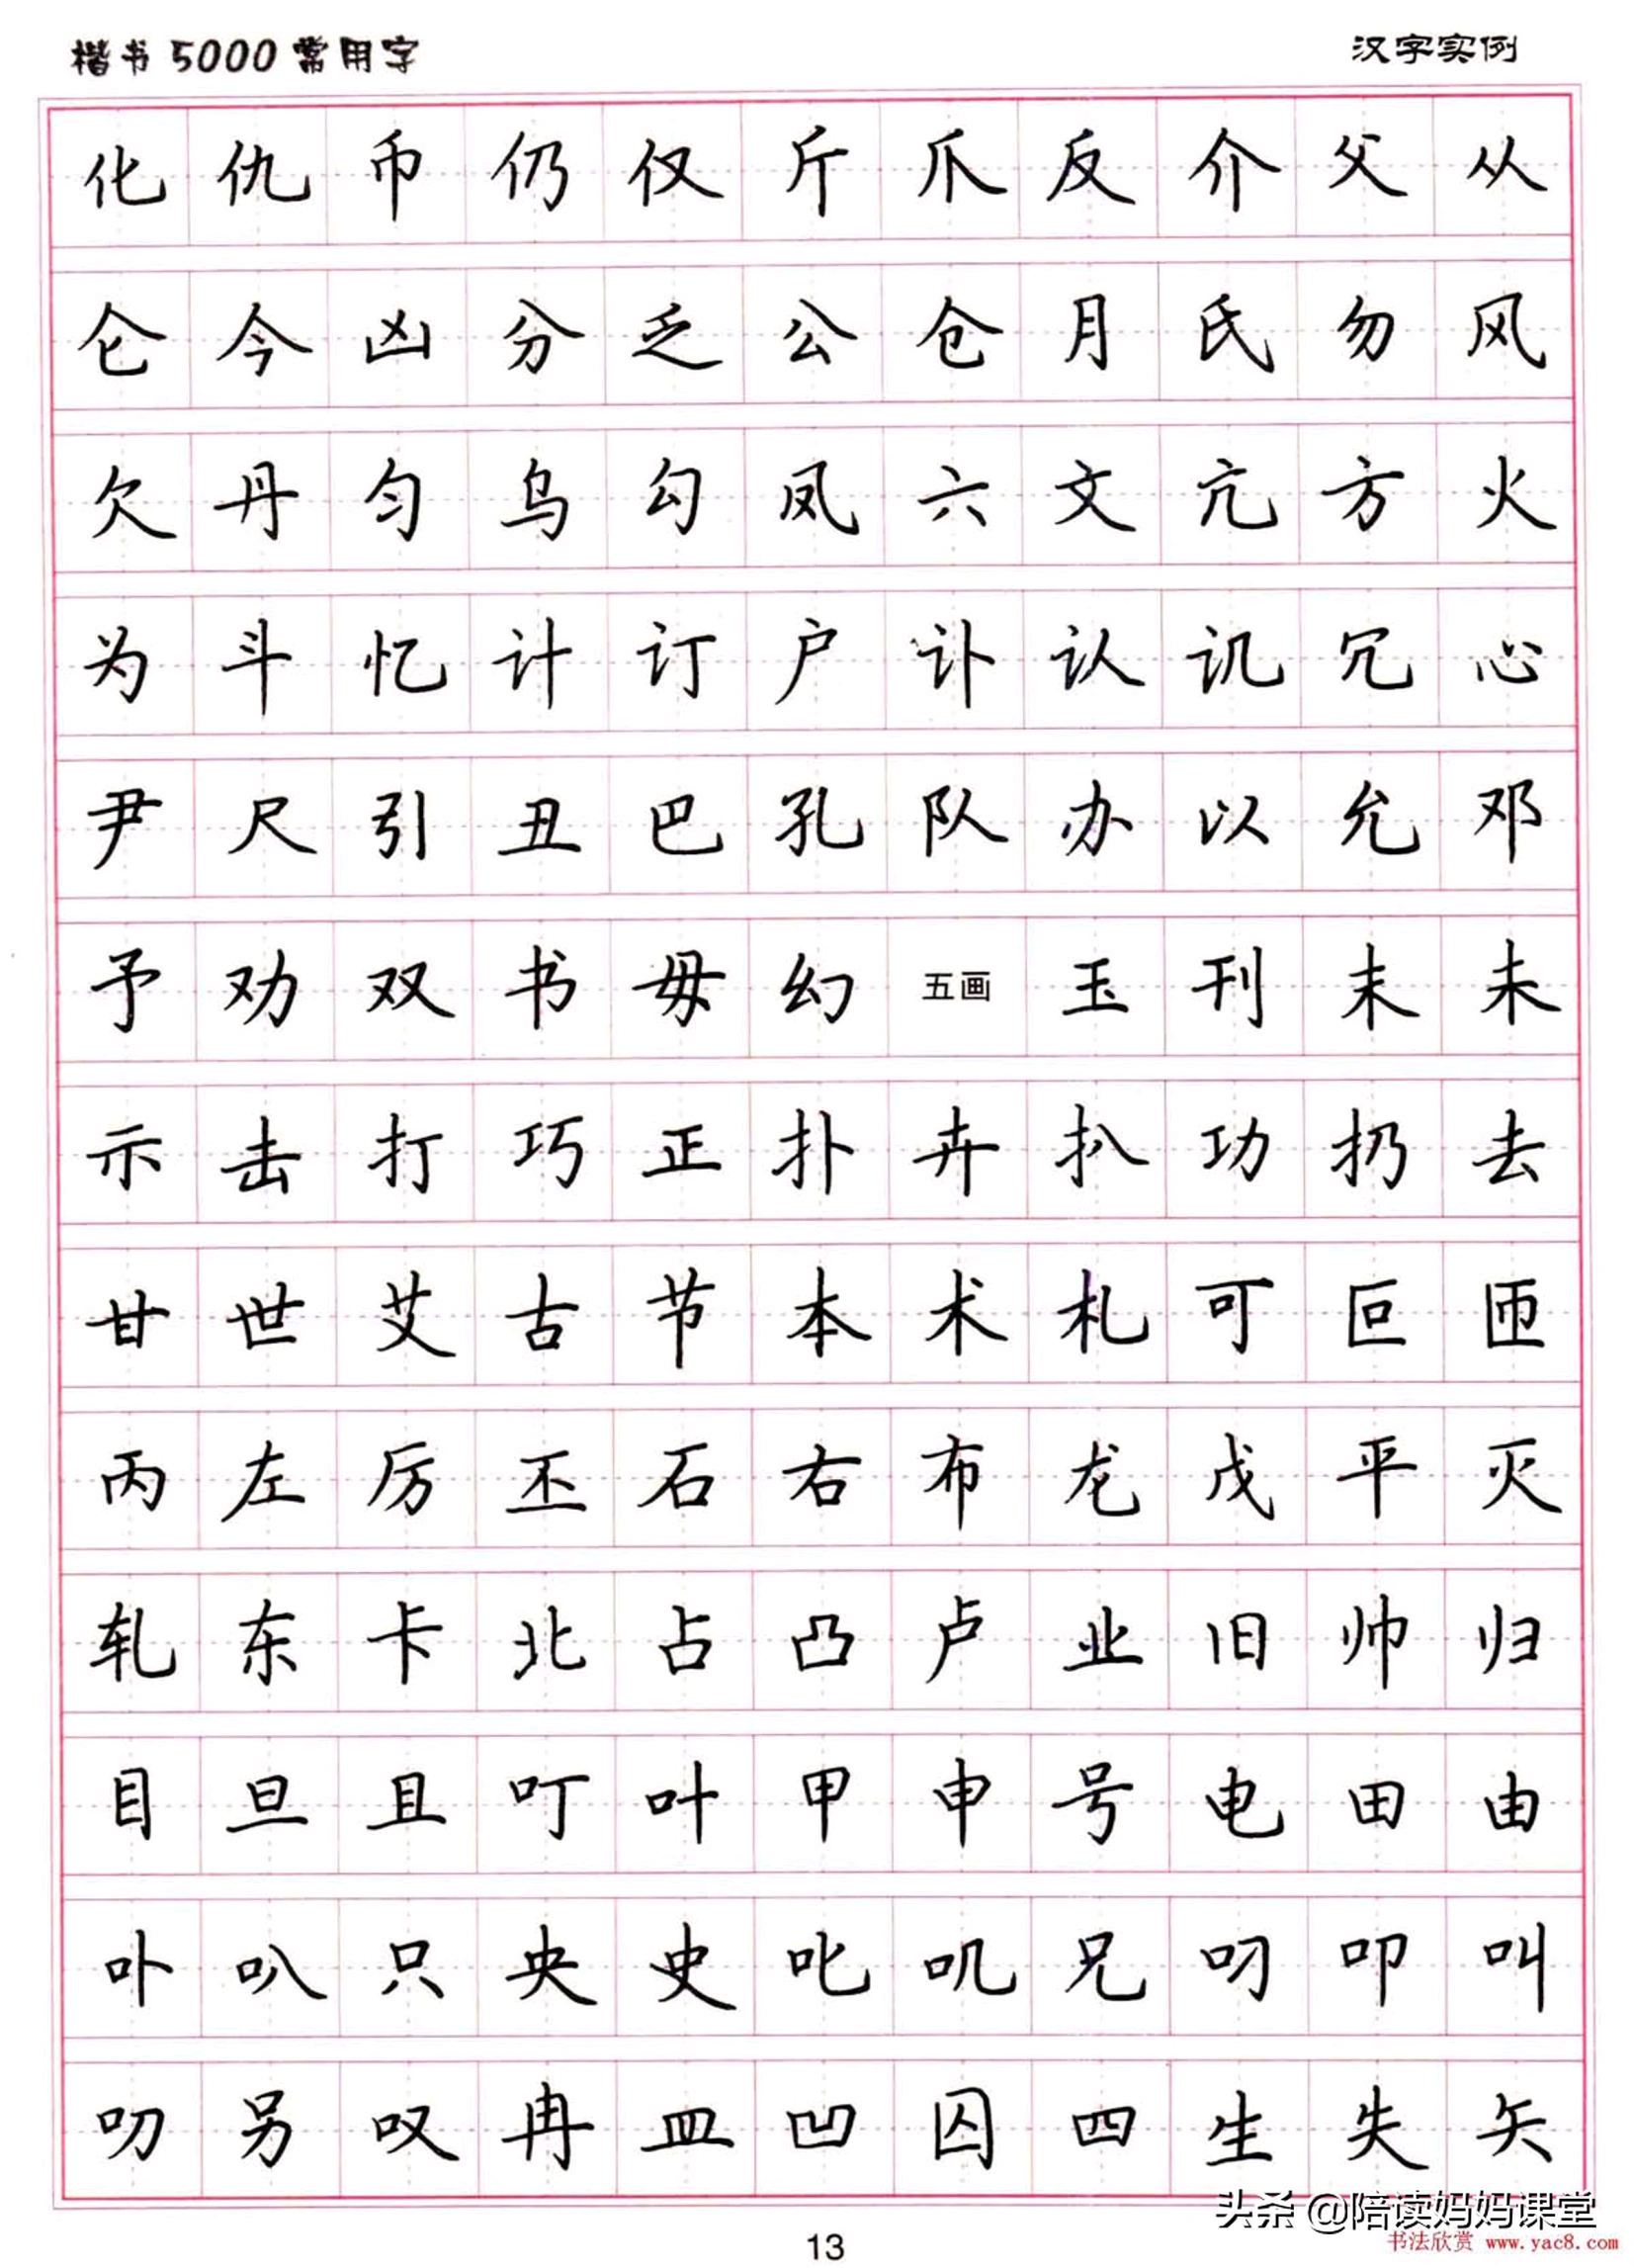 楷书5000常用字 汉字实例
化 仇 币 仍 仅 斤 爪 反 介 父 从
仑 今 凶 分 乏 公 仓 月 氏 勿 风
欠 丹 匀 乌 勾 凤 六 文 亢 方 火
为 斗 忆 计 订 户 讣 认 讥 冗 心
尹 尺 引 丑 巴 孔 队 办 以 允 邓
予 劝 双 书 毋 幻 五画 玉 刊 末 未
示 击 打 巧 正 扑 卉 扒 功 扔 去
甘 世 艾 古 节 本 术 札 可 叵 匝
丙 左 厉 丕 石 右 布 龙 戊 平 灭
轧 东 卡 北 占 凸 卢 业 旧 帅 归
目 旦 且 叮 叶 甲 申 号 电 田 由
卟 叭 只 央 史 叱 叽 兄 叼 叩 叫
叻 另 叹 冉 皿 凹 囚 四 生 失 矢
头条 @陪读妈妈课堂
书法欣赏 www.yac8.com
13